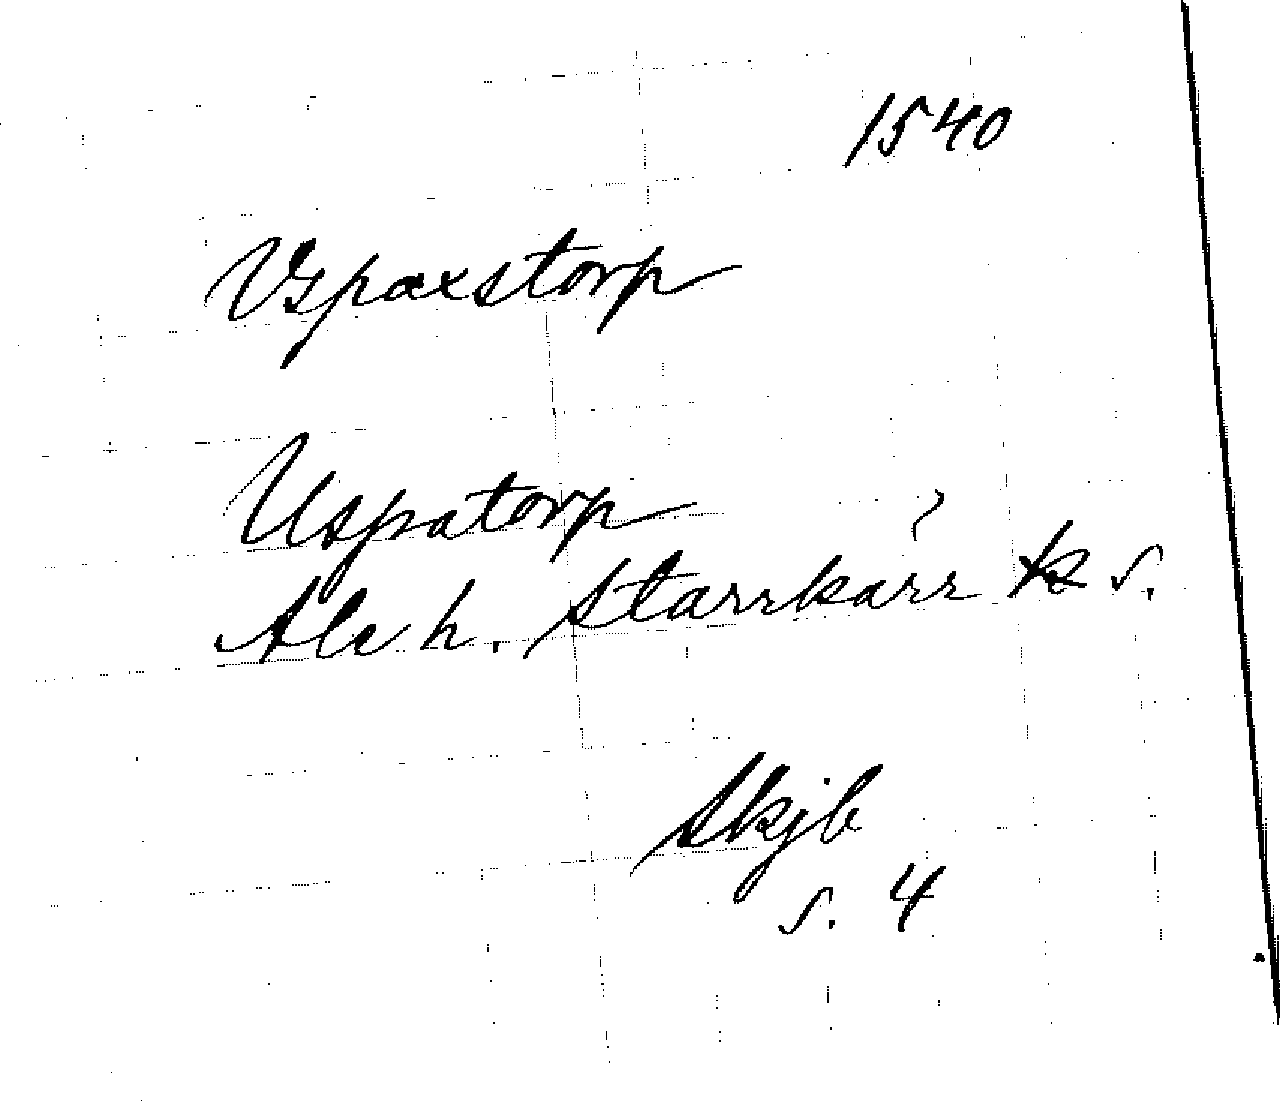 1540
Vspaxstorp
Uspatorp ?
Ale h. Starrkärr k s.
Skjb
s. 4